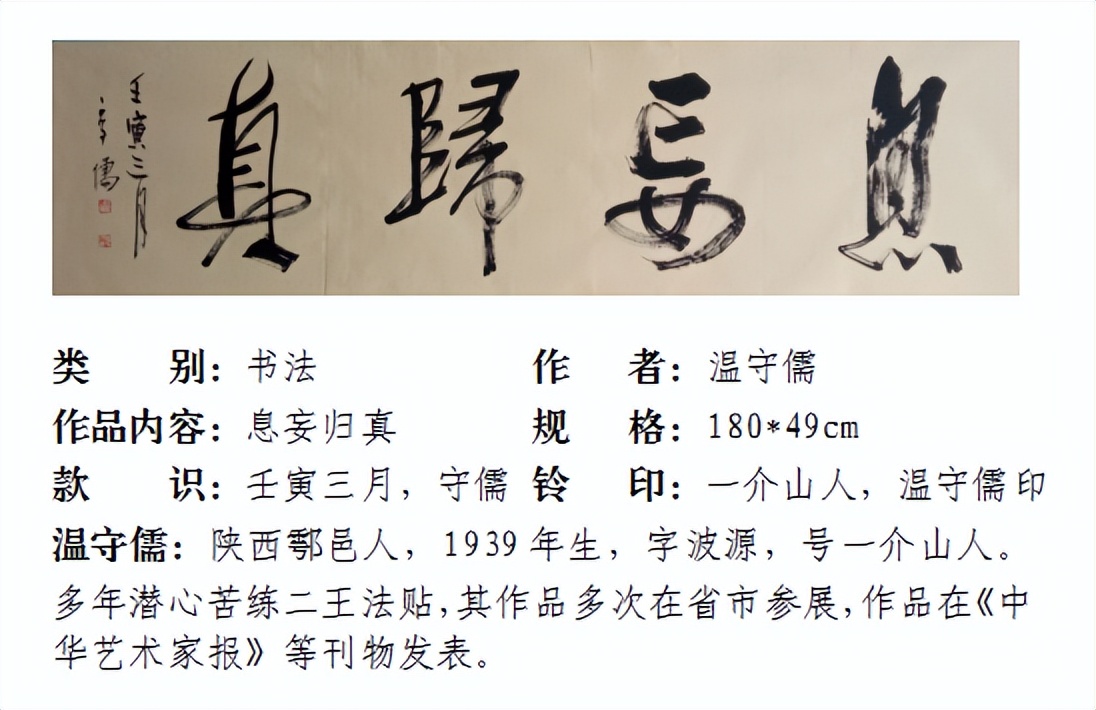 息妄歸真
壬寅三月
守儒
类别：书法 作者：温守儒
作品内容：息妄归真 规格：180*49cm
款识：壬寅三月，守儒 铃印：一介山人，温守儒印
温守儒：陕西鄠邑人，1939年生，字波源，号一介山人。
多年潜心苦练二王法贴,其作品多次在省市参展,作品在《中
华艺术家报》等刊物发表。